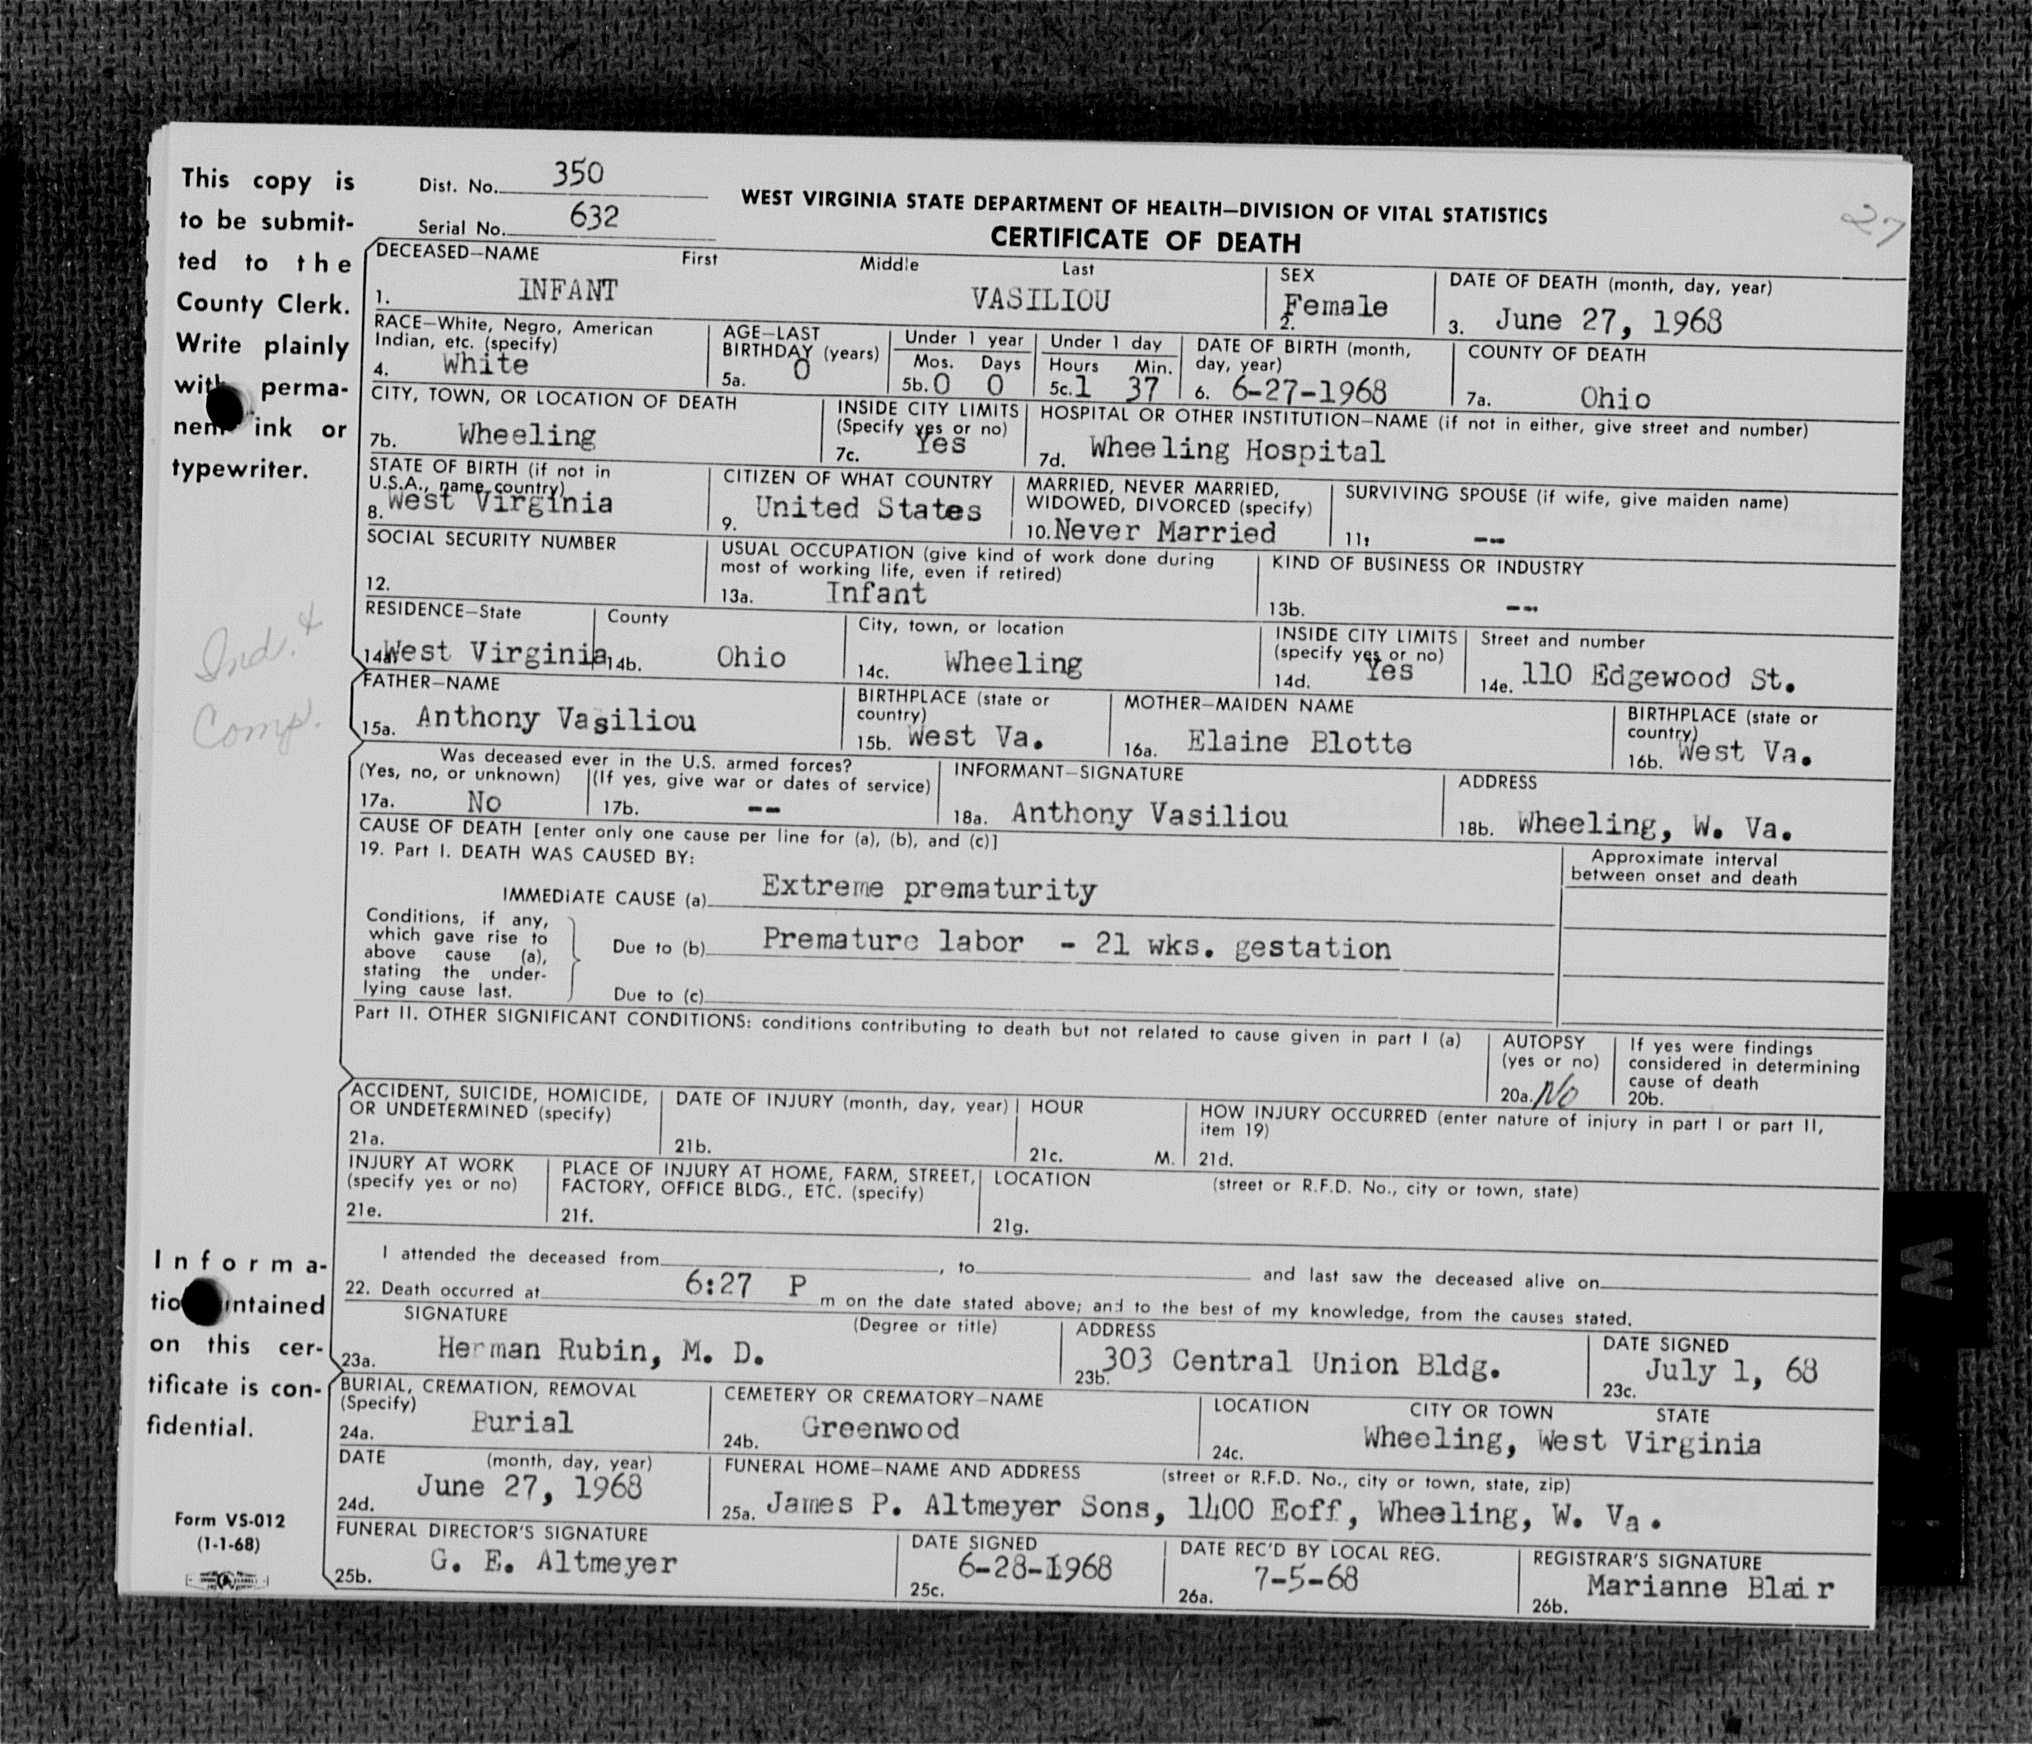 This copy is
to be submit-
ted to the
County Clerk.
Write plainly
with perma-
nent ink or
typewriter.
Ind. &
Comp.
Informa-
tion contained
on this cer-
tificate is con-
fidential.
Form VS-012
(1-1-68)
27
Dist. No. 350
Serial No. 632
WEST VIRGINIA STATE DEPARTMENT OF HEALTH—DIVISION OF VITAL STATISTICS
CERTIFICATE OF DEATH
DECEASED—NAME First Middle Last
1. INFANT VASILIOU
SEX
2. Female
DATE OF DEATH (month, day, year)
3. June 27, 1968
RACE—White, Negro, American
Indian, etc. (specify)
4. White
AGE—LAST
BIRTHDAY (years)
5a. 0
Under 1 year
Mos. Days
5b. 0 0
Under 1 day
Hours Min.
5c. 1 37
DATE OF BIRTH (month,
day, year)
6. 6-27-1968
COUNTY OF DEATH
7a. Ohio
CITY, TOWN, OR LOCATION OF DEATH
7b. Wheeling
INSIDE CITY LIMITS
(Specify yes or no)
7c. Yes
HOSPITAL OR OTHER INSTITUTION—NAME (if not in either, give street and number)
7d. Wheeling Hospital
STATE OF BIRTH (if not in
U.S.A., name country)
8. West Virginia
CITIZEN OF WHAT COUNTRY
9. United States
MARRIED, NEVER MARRIED,
WIDOWED, DIVORCED (specify)
10. Never Married
SURVIVING SPOUSE (if wife, give maiden name)
11. --
SOCIAL SECURITY NUMBER
12.
USUAL OCCUPATION (give kind of work done during
most of working life, even if retired)
13a. Infant
KIND OF BUSINESS OR INDUSTRY
13b. --
RESIDENCE—State
14a. West Virginia
County
14b. Ohio
City, town, or location
14c. Wheeling
INSIDE CITY LIMITS
(specify yes or no)
14d. Yes
Street and number
14e. 110 Edgewood St.
FATHER—NAME
15a. Anthony Vasiliou
BIRTHPLACE (state or
country)
15b. West Va.
MOTHER—MAIDEN NAME
16a. Elaine Blotte
BIRTHPLACE (state or
country)
16b. West Va.
Was deceased ever in the U.S. armed forces?
(Yes, no, or unknown) (If yes, give war or dates of service)
17a. No 17b. --
INFORMANT—SIGNATURE
18a. Anthony Vasiliou
ADDRESS
18b. Wheeling, W. Va.
CAUSE OF DEATH [enter only one cause per line for (a), (b), and (c)]
19. Part I. DEATH WAS CAUSED BY:
Approximate interval
between onset and death
IMMEDIATE CAUSE (a) Extreme prematurity
Conditions, if any,
which gave rise to
above cause (a),
stating the under-
lying cause last.
Due to (b) Premature labor - 21 wks. gestation
Due to (c)
Part II. OTHER SIGNIFICANT CONDITIONS: conditions contributing to death but not related to cause given in part I (a)
AUTOPSY
(yes or no)
20a. No
If yes were findings
considered in determining
cause of death
20b.
ACCIDENT, SUICIDE, HOMICIDE,
OR UNDETERMINED (specify)
21a.
DATE OF INJURY (month, day, year)
21b.
HOUR
21c. M.
HOW INJURY OCCURRED (enter nature of injury in part I or part II,
item 19)
21d.
INJURY AT WORK
(specify yes or no)
21e.
PLACE OF INJURY AT HOME, FARM, STREET,
FACTORY, OFFICE BLDG., ETC. (specify)
21f.
LOCATION (street or R.F.D. No., city or town, state)
21g.
I attended the deceased from , to and last saw the deceased alive on
22. Death occurred at 6:27 P m on the date stated above; and to the best of my knowledge, from the causes stated.
SIGNATURE (Degree or title)
23a. Herman Rubin, M. D.
ADDRESS
23b. 303 Central Union Bldg.
DATE SIGNED
23c. July 1, 68
BURIAL, CREMATION, REMOVAL
(Specify)
24a. Burial
CEMETERY OR CREMATORY—NAME
24b. Greenwood
LOCATION CITY OR TOWN STATE
24c. Wheeling, West Virginia
DATE (month, day, year)
24d. June 27, 1968
FUNERAL HOME—NAME AND ADDRESS (street or R.F.D. No., city or town, state, zip)
25a. James P. Altmeyer Sons, 1400 Eoff, Wheeling, W. Va.
FUNERAL DIRECTOR'S SIGNATURE
25b. G. E. Altmeyer
DATE SIGNED
25c. 6-28-1968
DATE REC'D BY LOCAL REG.
26a. 7-5-68
REGISTRAR'S SIGNATURE
26b. Marianne Blair